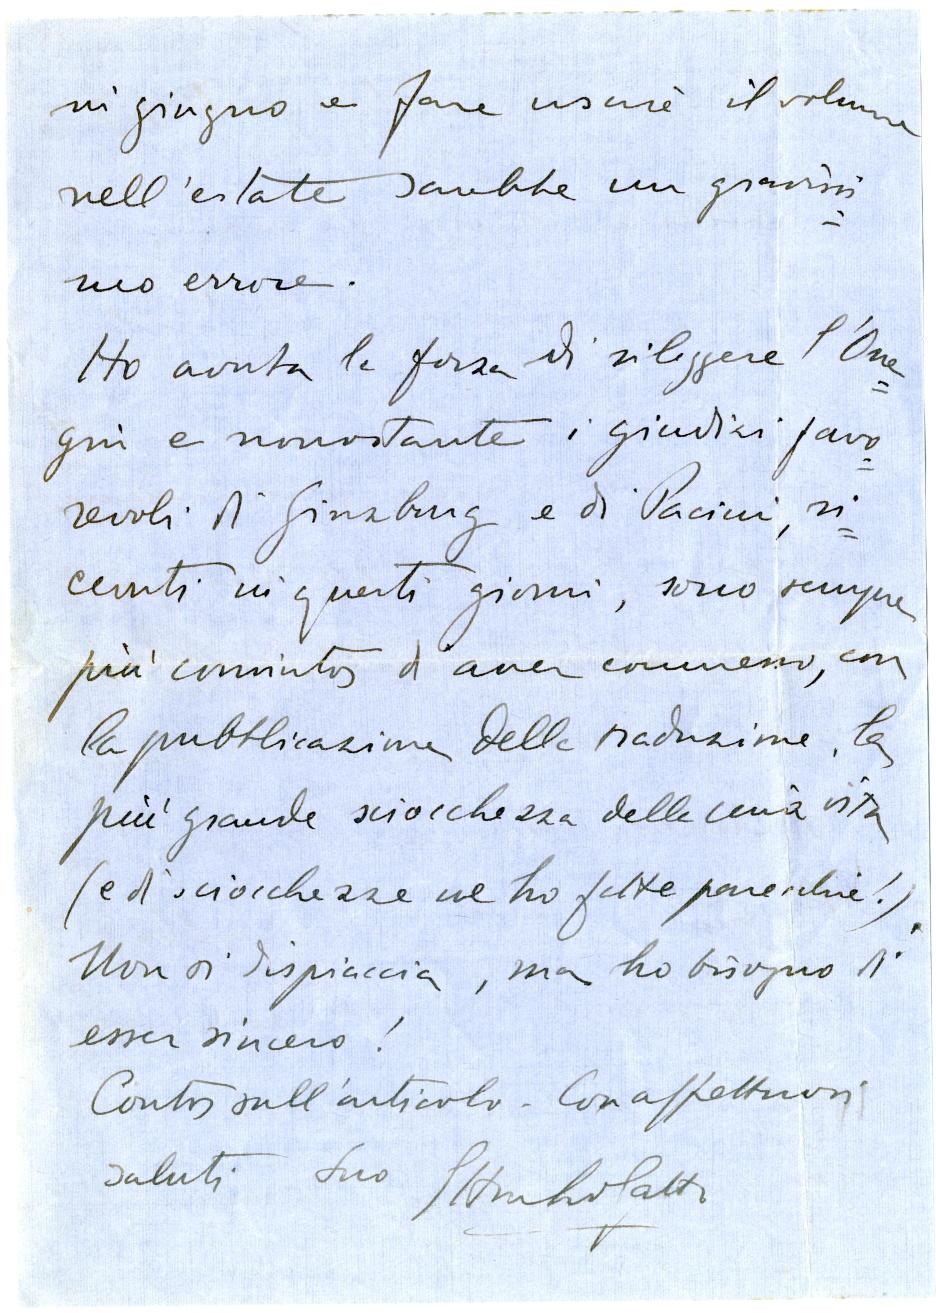 in giugno e fare uscire il volume
nell'estate sarebbe un gravissi=
mo errore.
Ho avuta la forza di rileggere l'One=
gin e nonostante i giudizi favo=
revoli di Ginzburg e di Pacini, ri=
cevuti in questi giorni, sono sempre
più convinto d'aver commesso, con
la pubblicazione della traduzione, la
più grande sciocchezza della mia vita
(e di sciocchezze ne ho fatte parecchie!).
Non si dispiaccia, ma ho bisogno di
esser sincero!
Conto sull'articolo - Con affettuosi
saluti Suo Ettore Lo Gatto